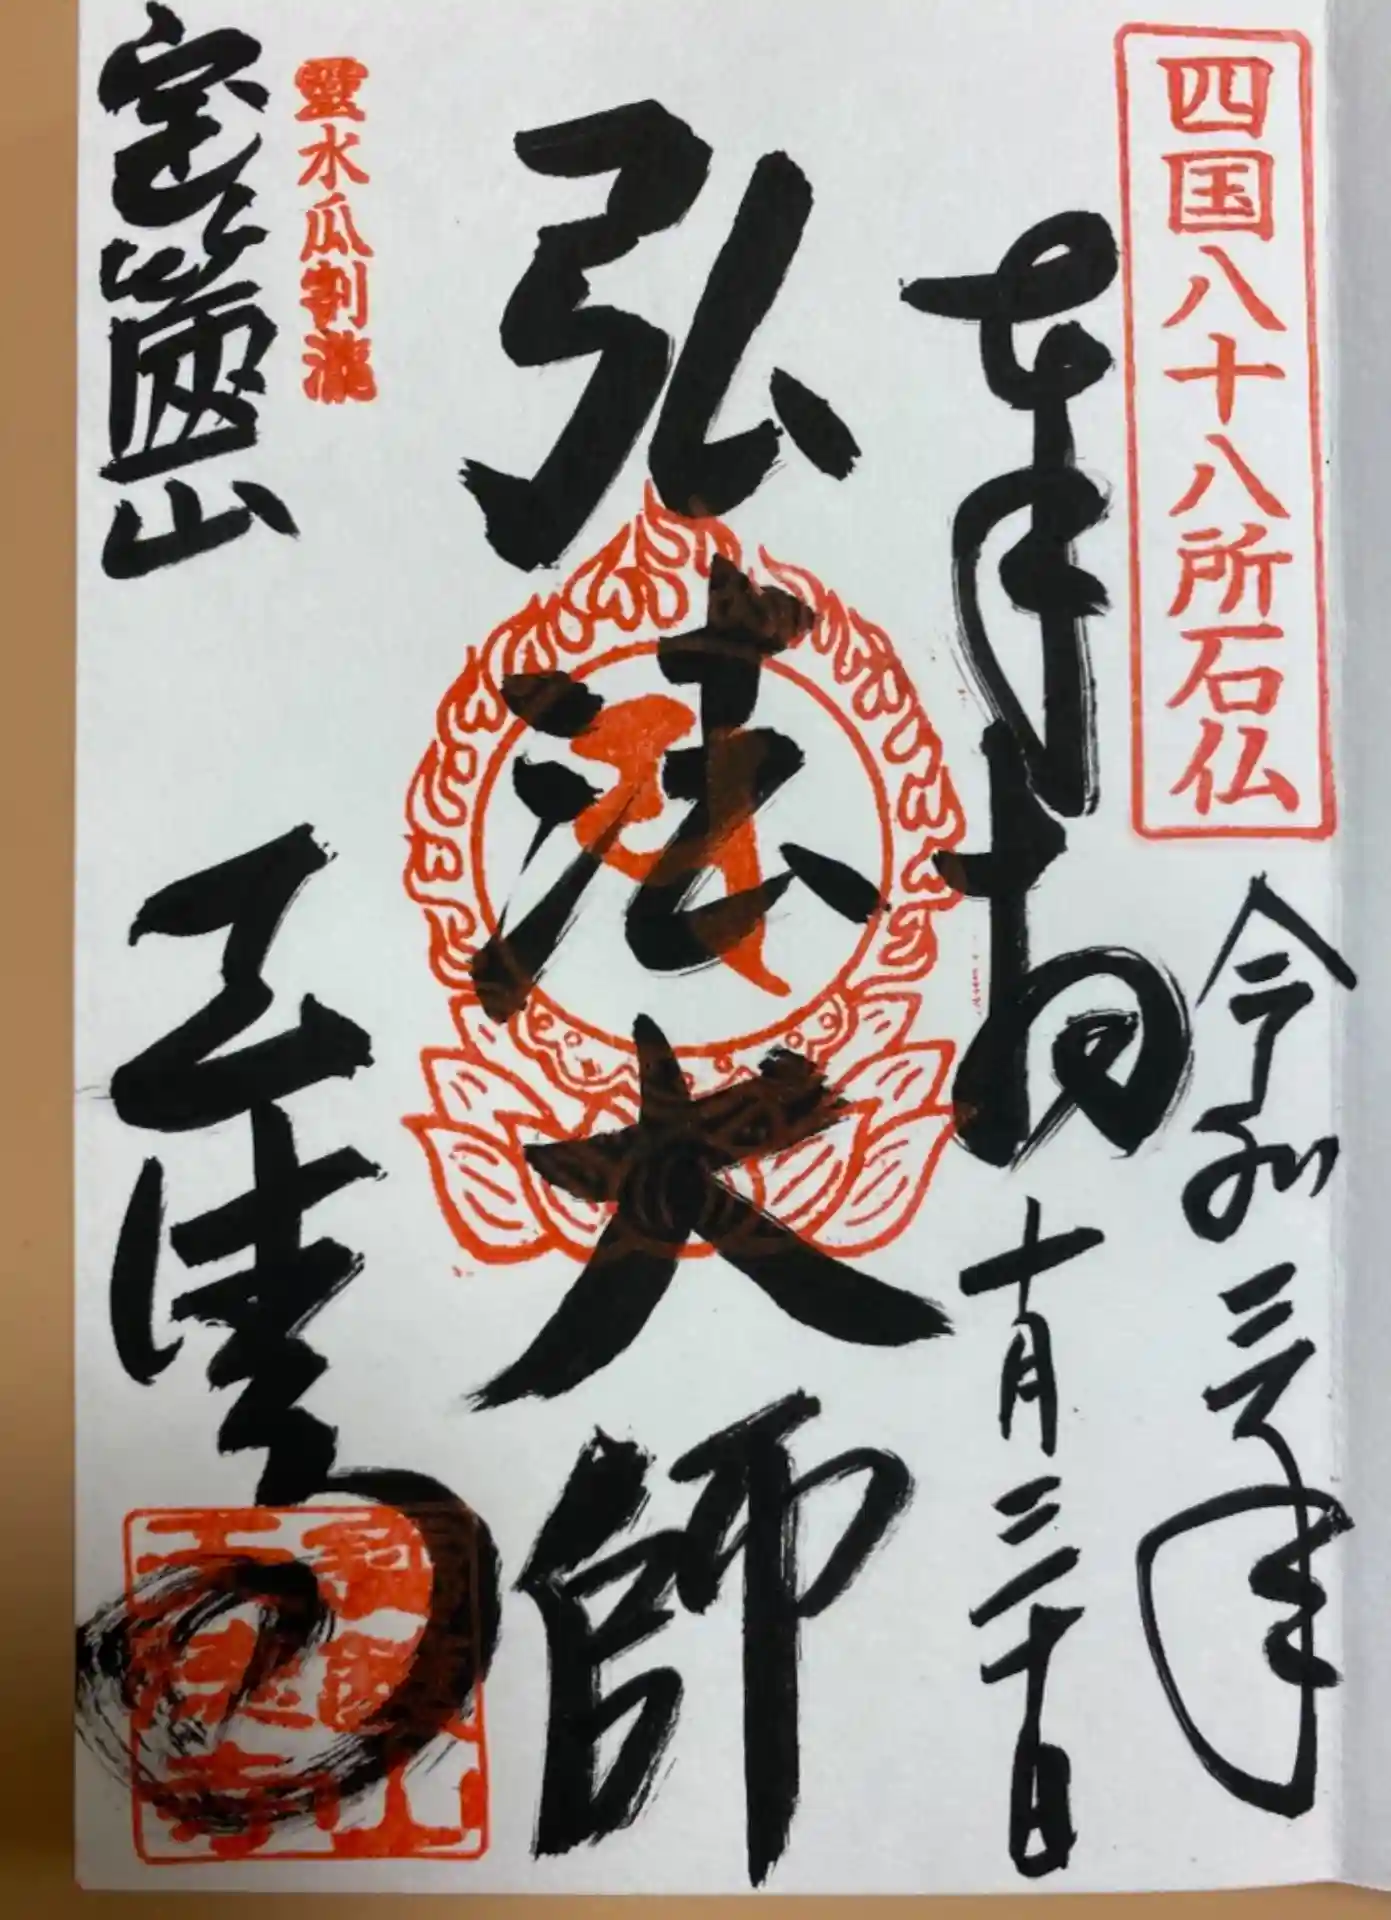 四国八十八所石仏
令和三年
奉拝
十月三十日
弘法大師
霊水瓜割瀧
宝篋山
天徳寺